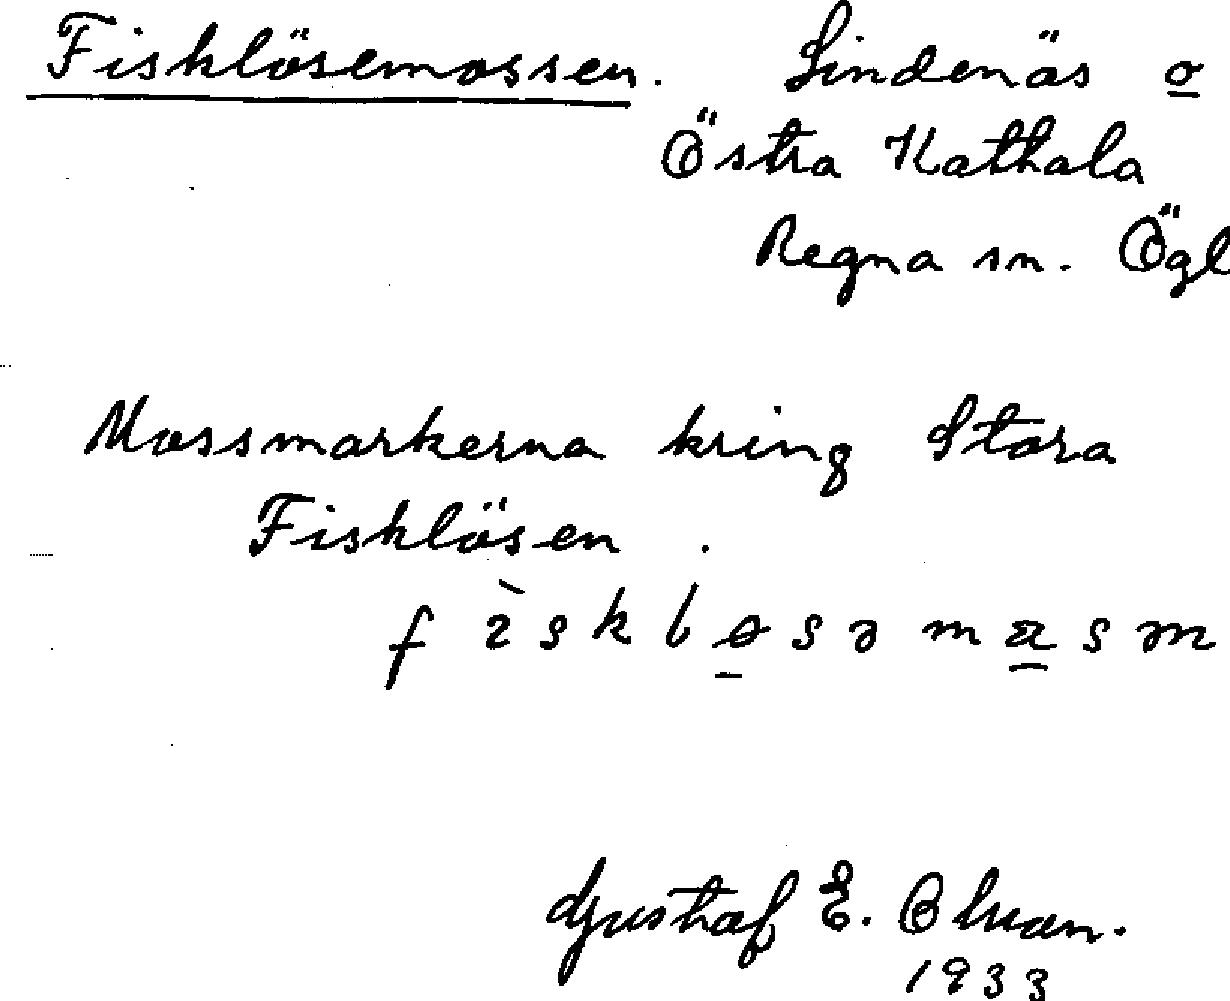 Fisklösemossen. Lindenäs o
Östra Katthala
Regna sn. Ögl
Mossmarkerna kring Stora
Fisklösen.
Gustaf E. Olsson.
1933